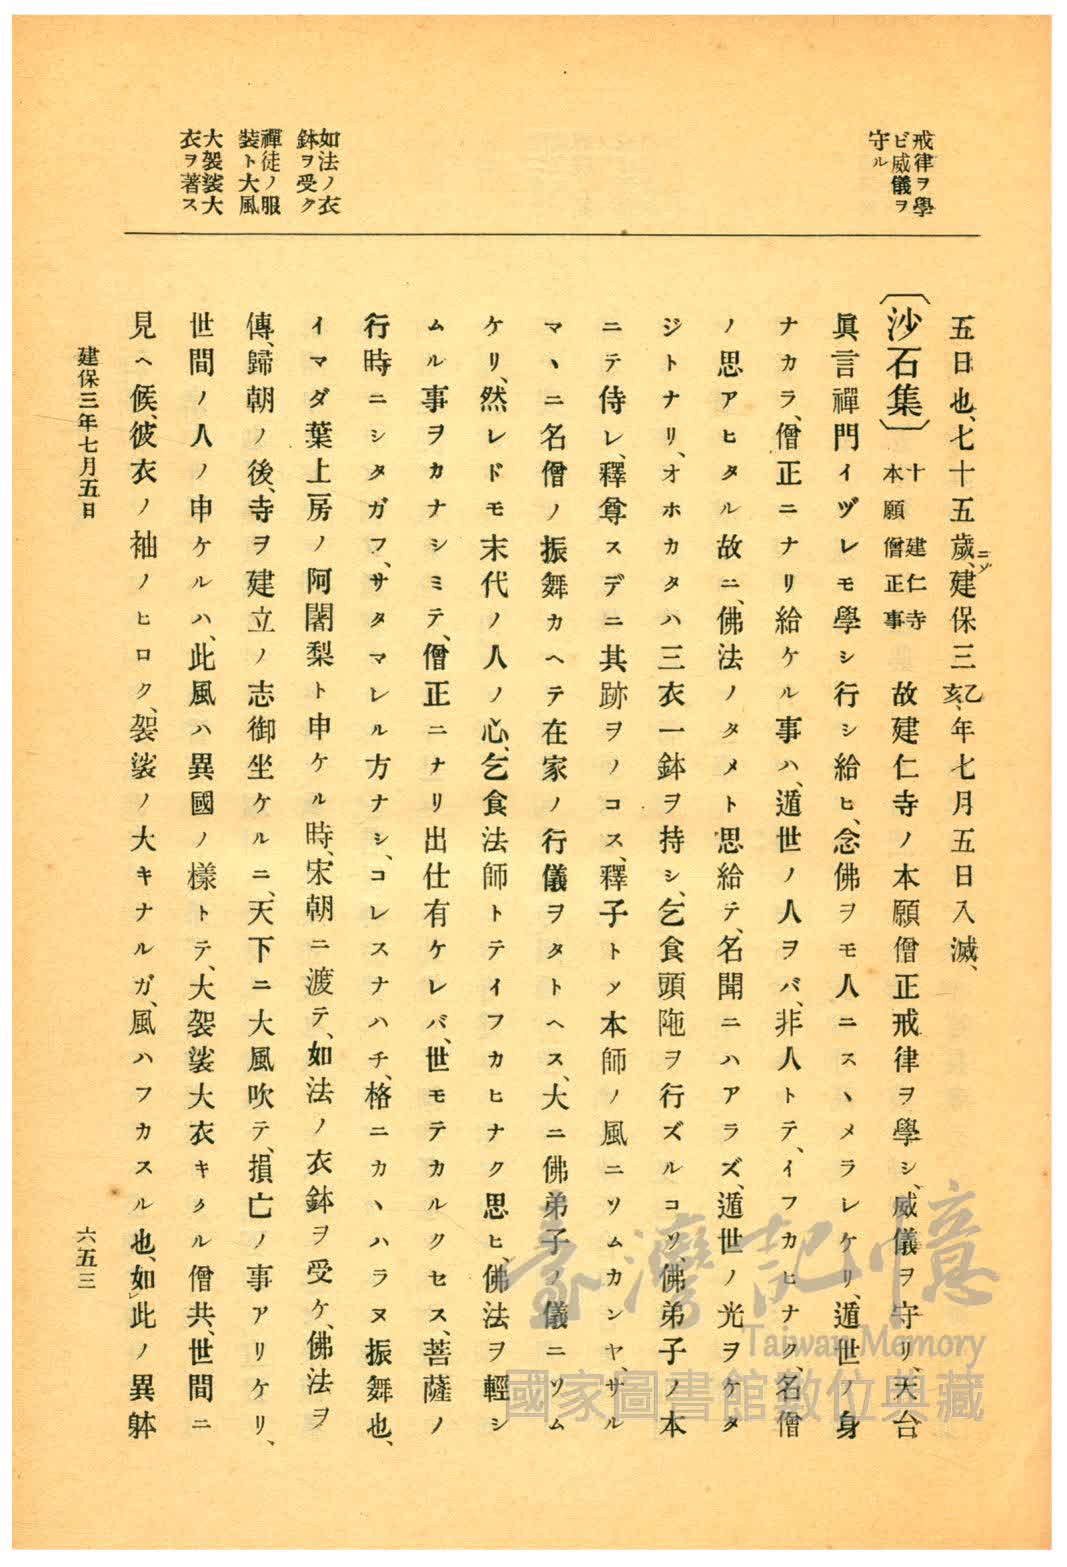 戒律ヲ學
ビ威儀ヲ
守ル
如法ノ衣
鉢ヲ受ク
禪徒ノ服
裝ト大風
大袈裟大
衣ヲ著ス
五日也、七十五歲、ニソ建保三乙亥、年七月五日入滅、
〔沙石集〕十本願建仁寺僧正事 故建仁寺ノ本願僧正戒律ヲ學シ、威儀ヲ守リ、天台
眞言禪門イヅレモ學シ行シ給ヒ、念佛ヲモ人ニスヽメラレケリ、遁世ノ身
ナカラ、僧正ニナリ給ケル事ハ、遁世ノ人ヲバ、非人トテ、イフカヒナク、名僧
ノ思アヒタル故ニ、佛法ノタメト思給テ、名聞ニハアラズ、遁世ノ光ヲケタ
ジトナリ、オホカタハ三衣一鉢ヲ持シ、乞食頭陁ヲ行ズルコソ、佛弟子ノ本
ニテ侍レ、釋尊スデニ其跡ヲノコス、釋子トメ本師ノ風ニソムカンヤ、サル
マヽニ名僧ノ振舞カヘテ在家ノ行儀ヲタトヘス、大ニ佛弟子ノ儀ニソム
ケリ、然レドモ末代ノ人ノ心、乞食法師トテイフカヒナク思ヒ、佛法ヲ輕シ
ムル事ヲカナシミテ、僧正ニナリ出仕有ケレバ、世モテカルクセス、菩薩ノ
行時ニシタガフ、サタマレル方ナシ、コレスナハチ、格ニカヽハラヌ振舞也、
イマダ葉上房ノ阿闍梨ト申ケル時、宋朝ニ渡テ、如法ノ衣鉢ヲ受ケ、佛法ヲ
傳、歸朝ノ後、寺ヲ建立ノ志御坐ケルニ、天下ニ大風吹テ、損亡ノ事アリケリ、
世間ノ人ノ申ケルハ、此風ハ異國ノ樣トテ、大袈裟大衣キタル僧共、世間ニ
見ヘ候、彼衣ノ袖ノヒロク、袈裟ノ大キナルガ、風ハフカスル也、如」此ノ異躰
建保三年七月五日
六五三
臺灣記憶
Taiwan Memory
國家圖書館數位典藏